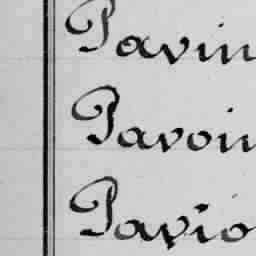 Pavin
Pavoin
Pavio